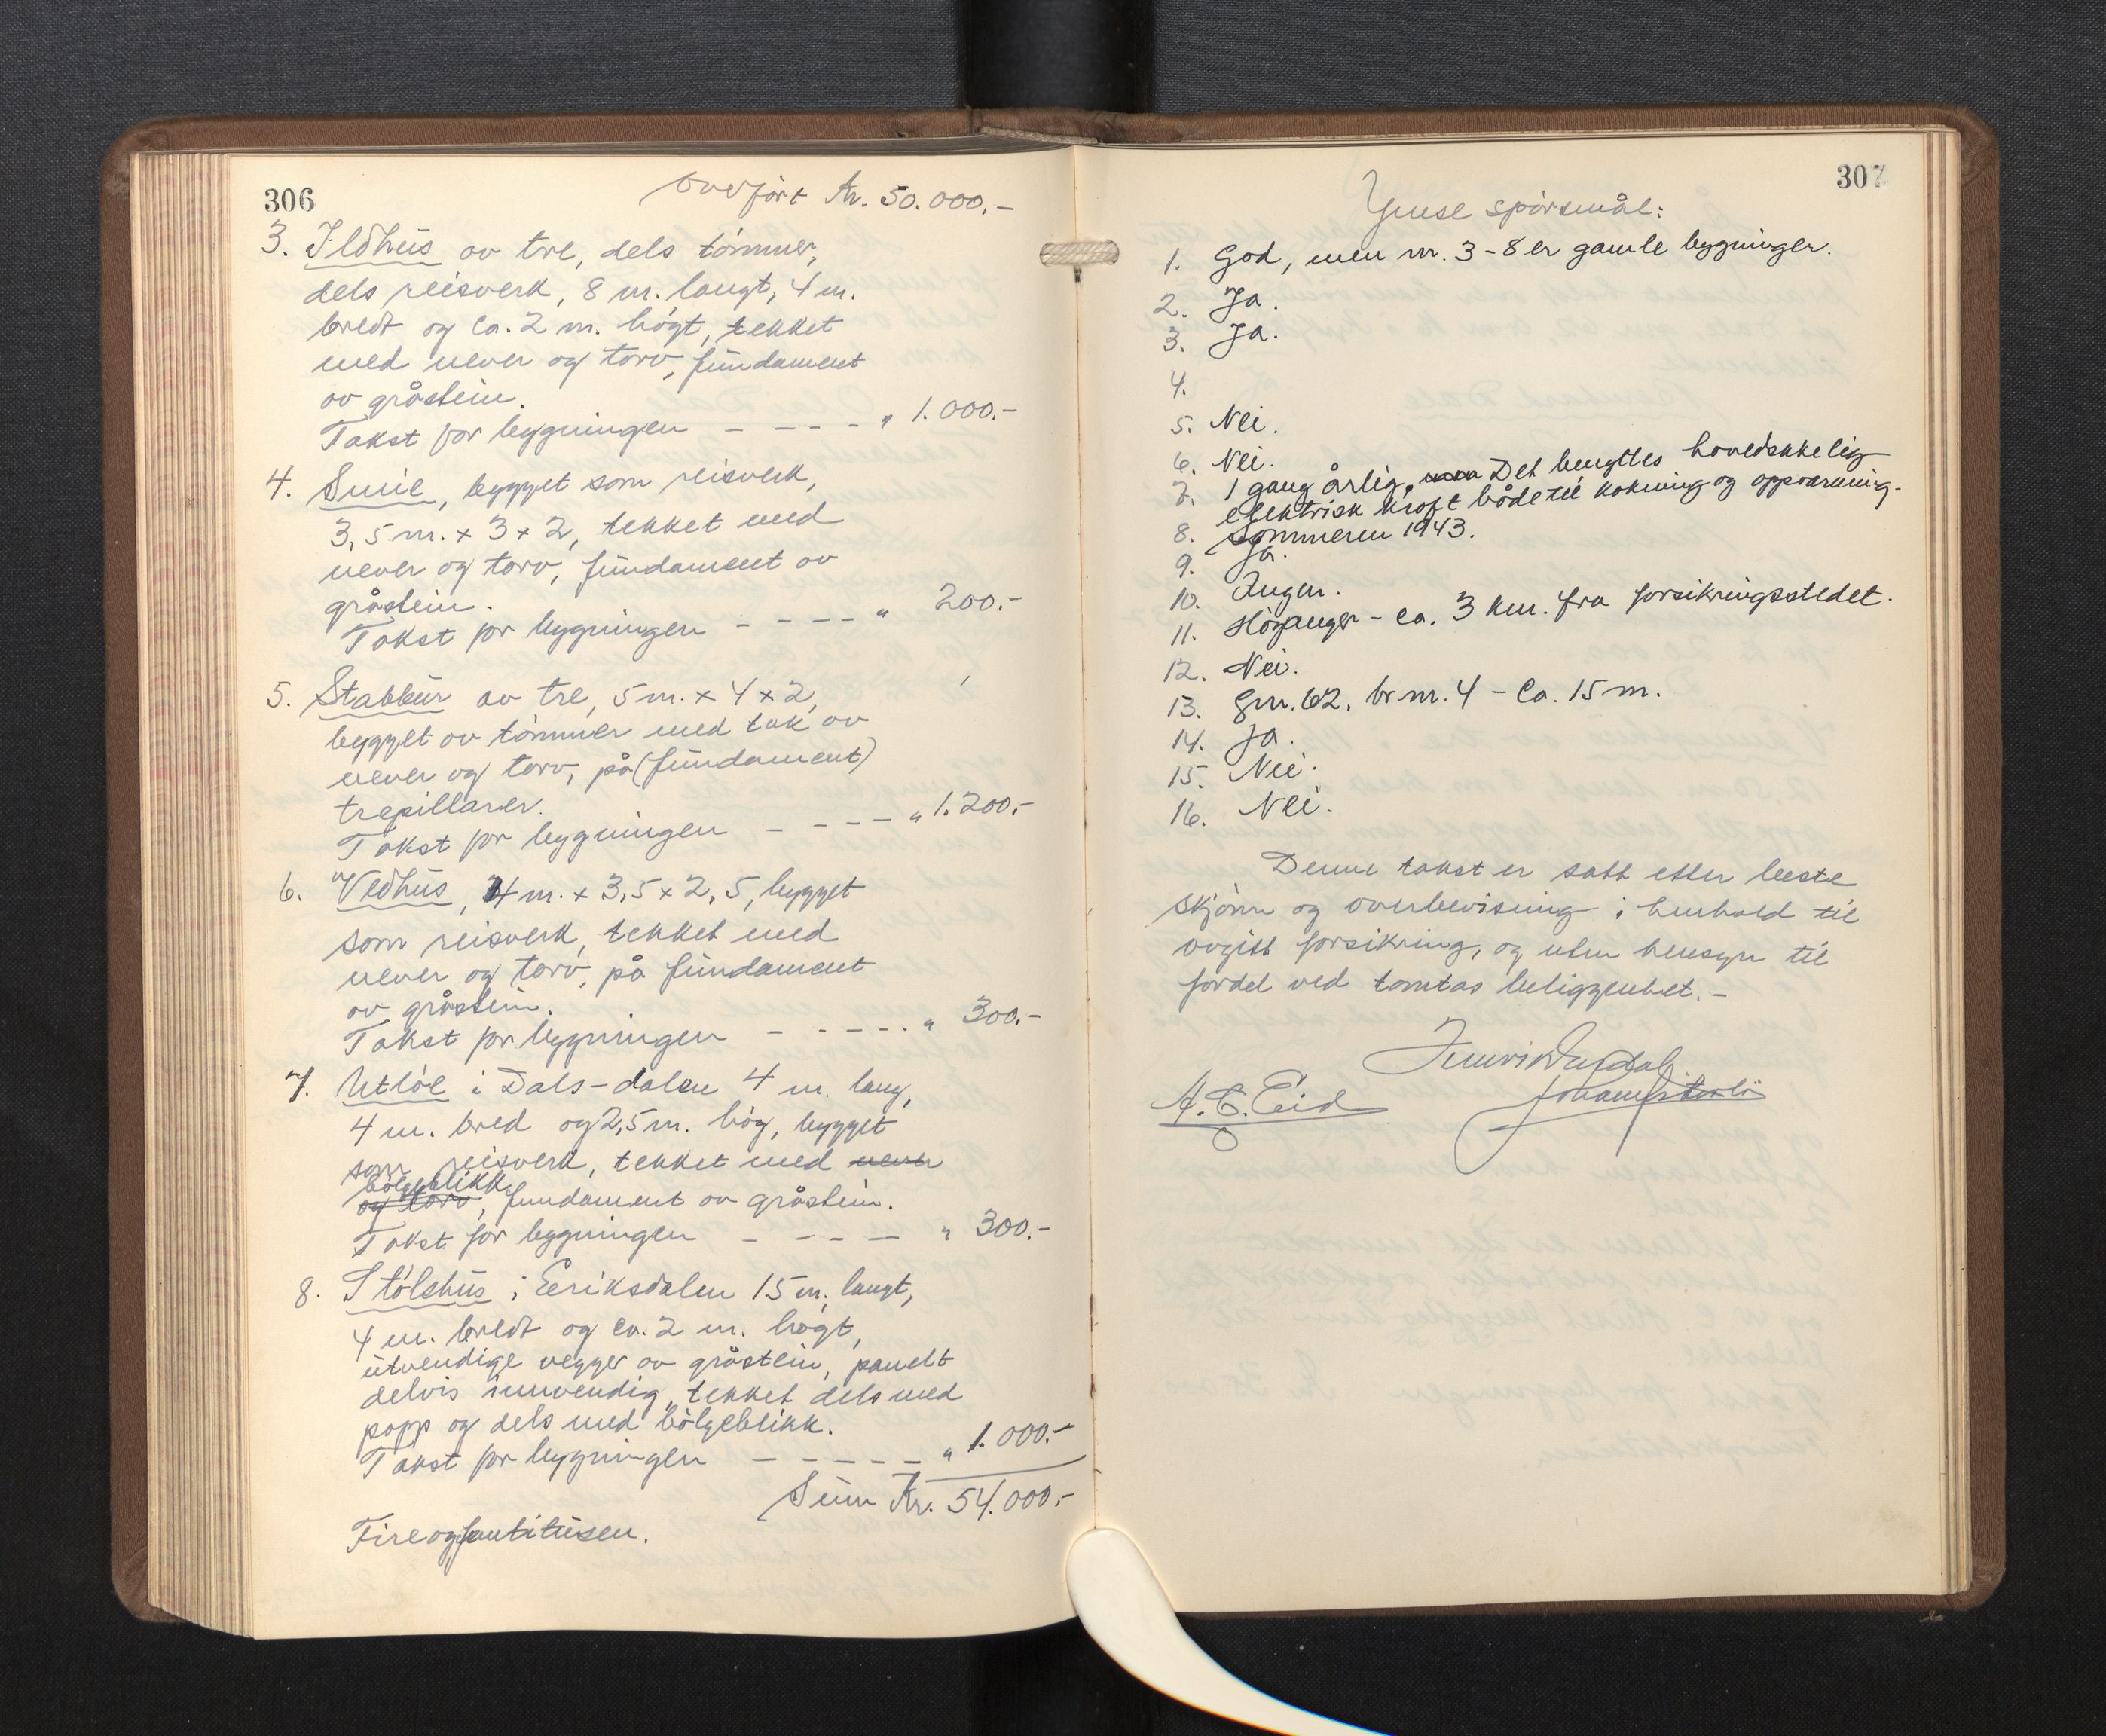 306
Overført Kr. 50.000.-
3. Ildhus av tre, dels tømmer,
dels reisverk, 8 m. langt, 4 m.
bredt og ca. 2 m. högt, tekket
med never og torv, fundament
av gråstein.
Takst for bygningen - - - - " 1.000.-
4. Smie, bygget som reisverk,
3,5 m. x 3 x 2, tekket med
never og torv, fundament av
gråstein.
Takst for bygningen - - - - " 200.-
5. Stabbur av tre, 5 m. x 4 x 2,
bygget av tømmer med tak av
never og torv, på (fundament)
trepillarer.
Takst for bygningen - - - - " 1.200.-
6. Vedhus, 4 m. x 3,5 x 2,5, bygget
som reisverk, tekket med
never og torv, på fundament
av gråstein.
Takst for bygningen - - - - - " 300.-
7. Utløe i Dals-dalen 4 m. lang,
4 m. bred og 2,5 m. hög, bygget
som reisverk, tekket med never
bölgeblikk
og torv, fundament av gråstein.
Takst for bygningen - - - - " 300.-
8. Stölshus i Eeriksdalen 15 m. langt,
4 m. bredt og ca. 2 m. högt,
utvendige vegger av gråstein, panelt
delvis innvendig, tekket dels med
papp og dels med bölgeblikk.
Takst for bygningen - - - - - " 1.000.-
Sum Kr. 54.000.-
Fireogfemtitusen.
307
Ymse spörsmål:
1. God, men nr. 3-8 er gamle bygninger.
2. Ja.
3. Ja.
4.
5. Nei.
6. Nei.
7. 1 gang årlig. Det benyttes hovedsakkelig
elektrisk kraft både til kokning og oppvarming.
8. Sommeren 1943.
9. Ja.
10. Ingen.
11. Höyanger - ca. 3 km. fra forsikringsstedet.
12. Nei.
13. Gnr. 62, br nr. 4 - ca. 15 m.
14. Ja.
15. Nei.
16. Nei.
Denne takst er satt etter beste
skjönn og overbevisning i henhold til
avgitt forsikring, og uten hensyn til
fordel ved tomtas beliggenhet. -
A. E. Eid